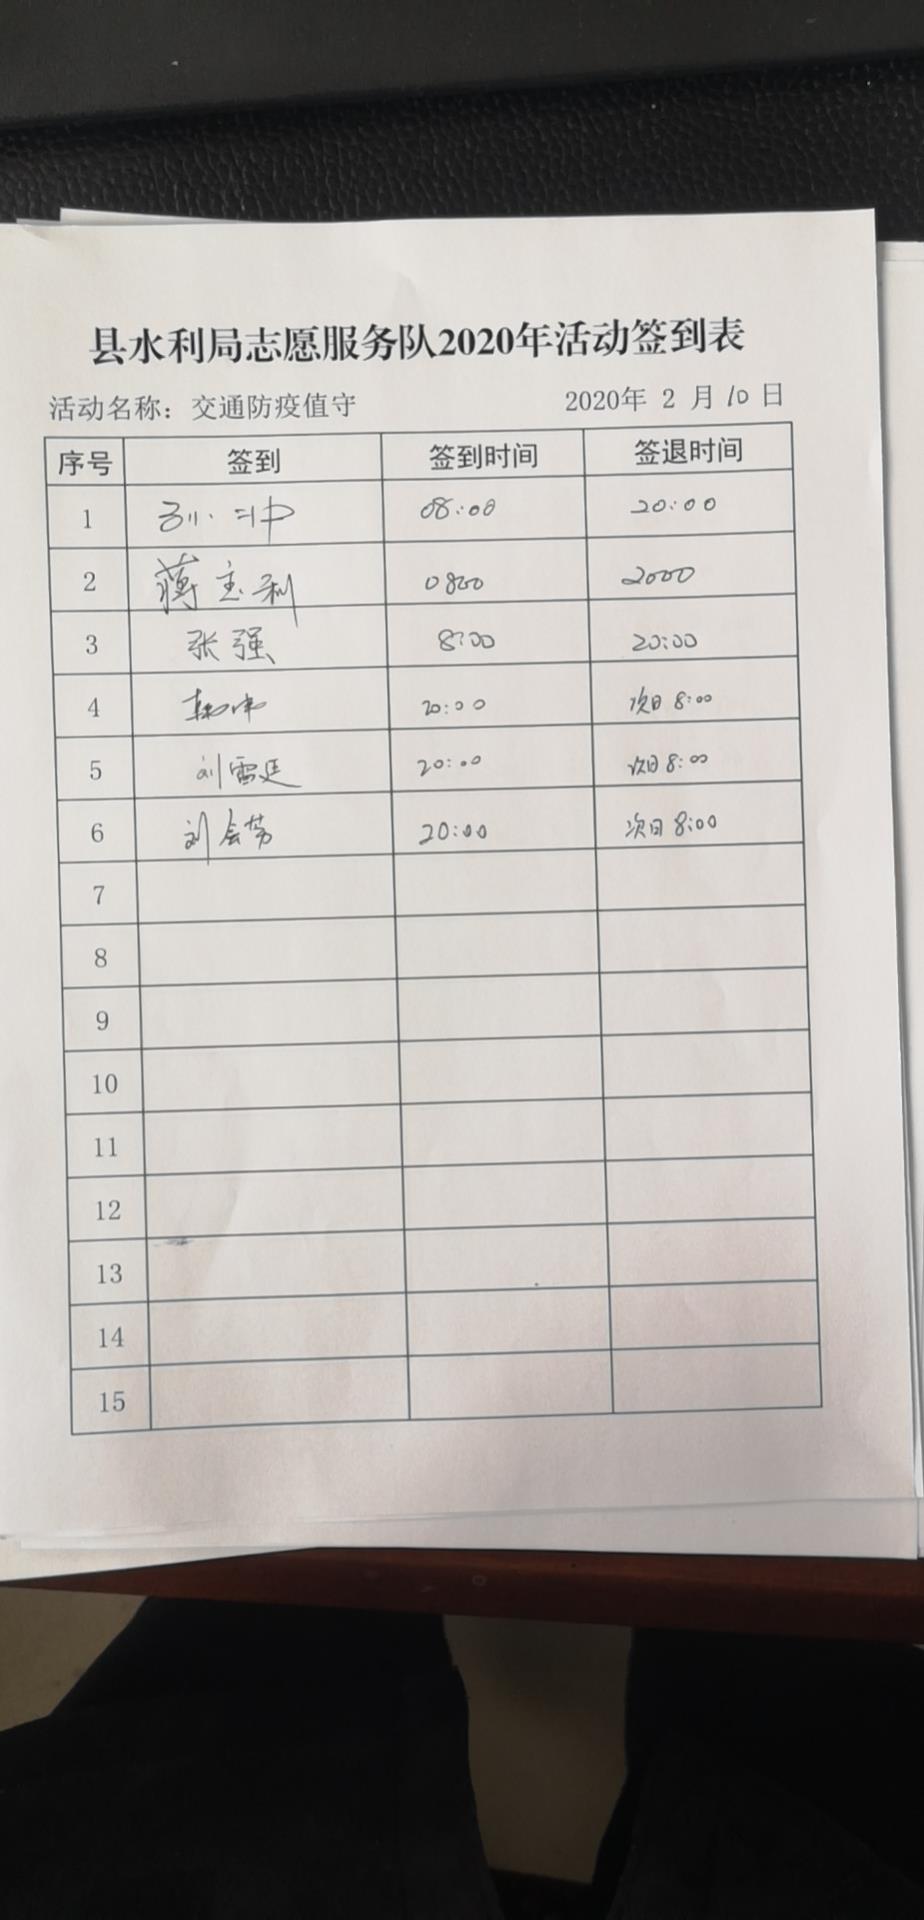 县水利局志愿服务队2020年活动签到表
活动名称：交通防疫值守 2020年 2 月 10 日
序号 签到 签到时间 签退时间
1 孙冲 08:00 20:00
2 蒋宝利 0800 2000
3 张强 8:00 20:00
4 20:00 次日 8:00
5 刘雷廷 20:00 次日 8:00
6 刘会芳 20:00 次日 8:00
7
8
9
10
11
12
13
14
15